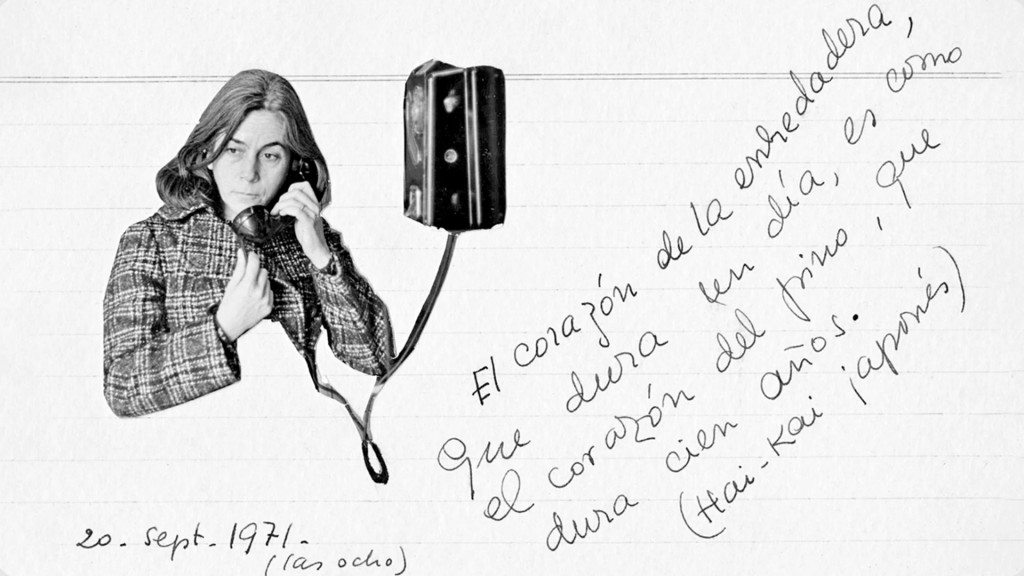 El corazón de la enredadera,
que dura un día, es como
el corazón del pino, que
dura cien años.
(Hai-Kai japonés)
20. sept. 1971.
(las ocho)